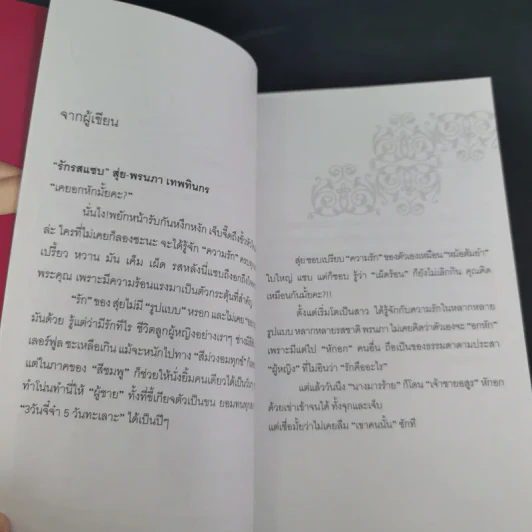 จากผู้เขียน
"รักรสแซบ" สุ่ย-พรนภา เทพทินกร
"เคยอกหักมั้ยคะ?"
นั่นไง!พยักหน้ารับกันหงึกหงัก เจ็บจี๊ดถึงขั้วหัว
ล่ะ ใครที่ไม่เคยก็ลองซะนะ จะได้รู้จัก "ความรัก"
เปรี้ยว หวาน มัน เค็ม เผ็ด รสหลังนี่แซบถึงอกถึง
พระคุณ เพราะมีความร้อนแรงมาเป็นตัวกระตุ้นที่สำคัญ
"รัก" ของ สุ่ยไม่มี "รูปแบบ" หรอก และไม่เคย
มันด้วย รู้แต่ว่ามีรักทีไร ชีวิตลูกผู้หญิงอย่างเราๆ ช่าง
เลอร์ฟูล ซะเหลือเกิน แม้จะหนักไปทาง "สีม่วงอมทุกข์"
แต่ในภาคของ "สีชมพู" ก็ช่วยให้นั่งยิ้มคนเดียวได้เป็น
ทำโน่นทำนี่ให้ "ผู้ชาย" ทั้งที่ขี้เกียจตัวเป็นขน ยอมทน
"3วันจี่จ๋า 5 วันทะเลาะ" ได้เป็นปีๆ
สุ่ยชอบเปรียบ "ความรัก" ของตัวเองเหมือน "หม้อต้มยำ"
ใบใหญ่ แซบ แต่ก็ชอบ รู้ว่า "เผ็ดร้อน" ก็ยังไม่เลิกกิน คุณคิด
เหมือนกันมั้ยคะ?!!
ตั้งแต่เริ่มโตเป็นสาว ได้รู้จักกับความรักในหลากหลาย
รูปแบบ หลากหลายรสชาติ พรนภา ไม่เคยคิดว่าตัวเองจะ "อกหัก"
เพราะมีแต่ไป "หักอก" คนอื่น ถือเป็นของธรรมดาตามประสา
"ผู้หญิง" ที่ไม่อินว่า "รักคืออะไร"
แต่แล้ววันนึง "นางมารร้าย" ก็โดน "เจ้าชายอสูร" หักอก
ด้วยเข่าเข้าจนได้ ทั้งจุกและเจ็บ
แต่เชื่อมั้ยว่าไม่เคยลืม "เขาคนนั้น" ซักที